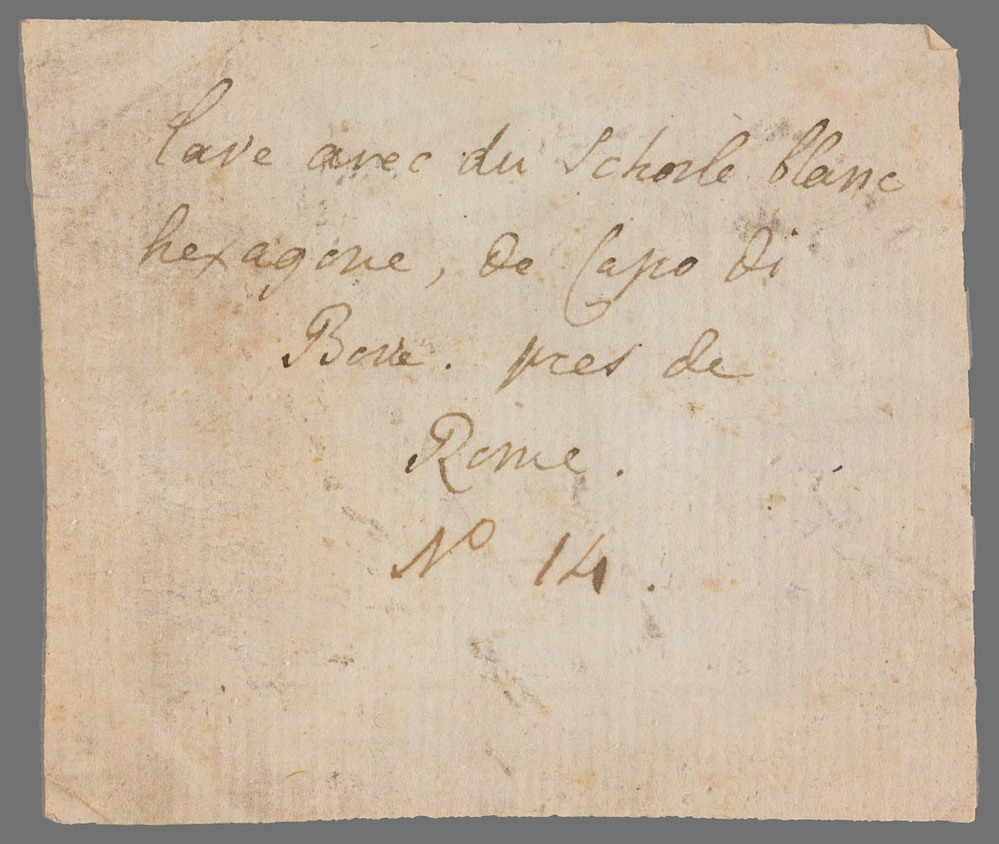 lave avec du Schorle blanc
hexagone, de Capo di
Bove. pres de
Rome.
Nº 14.